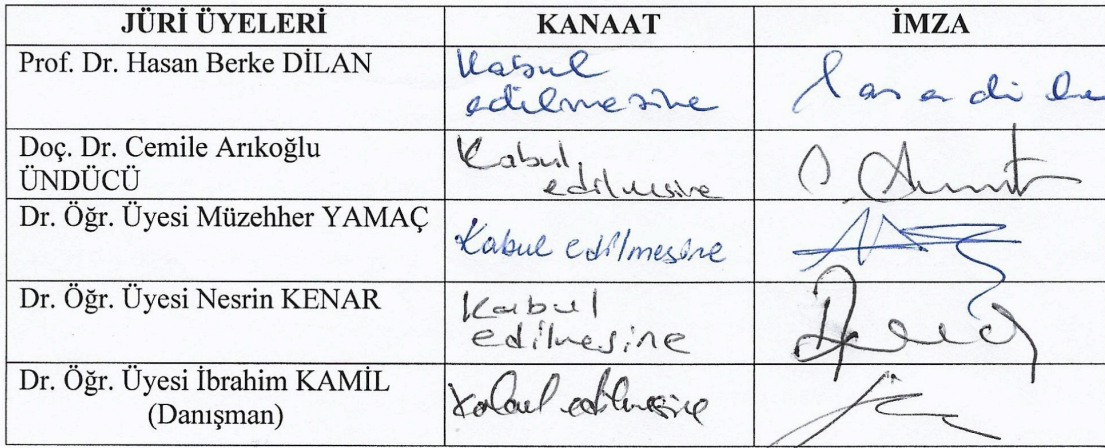 JÜRİ ÜYELERİ KANAAT İMZA
Prof. Dr. Hasan Berke DİLAN Kabul
edilmesine
Doç. Dr. Cemile Arıkoğlu Kabul
ÜNDÜCÜ edilmesine
Dr. Öğr. Üyesi Müzehher YAMAÇ Kabul edilmesine
Dr. Öğr. Üyesi Nesrin KENAR Kabul
edilmesine
Dr. Öğr. Üyesi İbrahim KAMİL Kabul edilmesine
(Danışman)